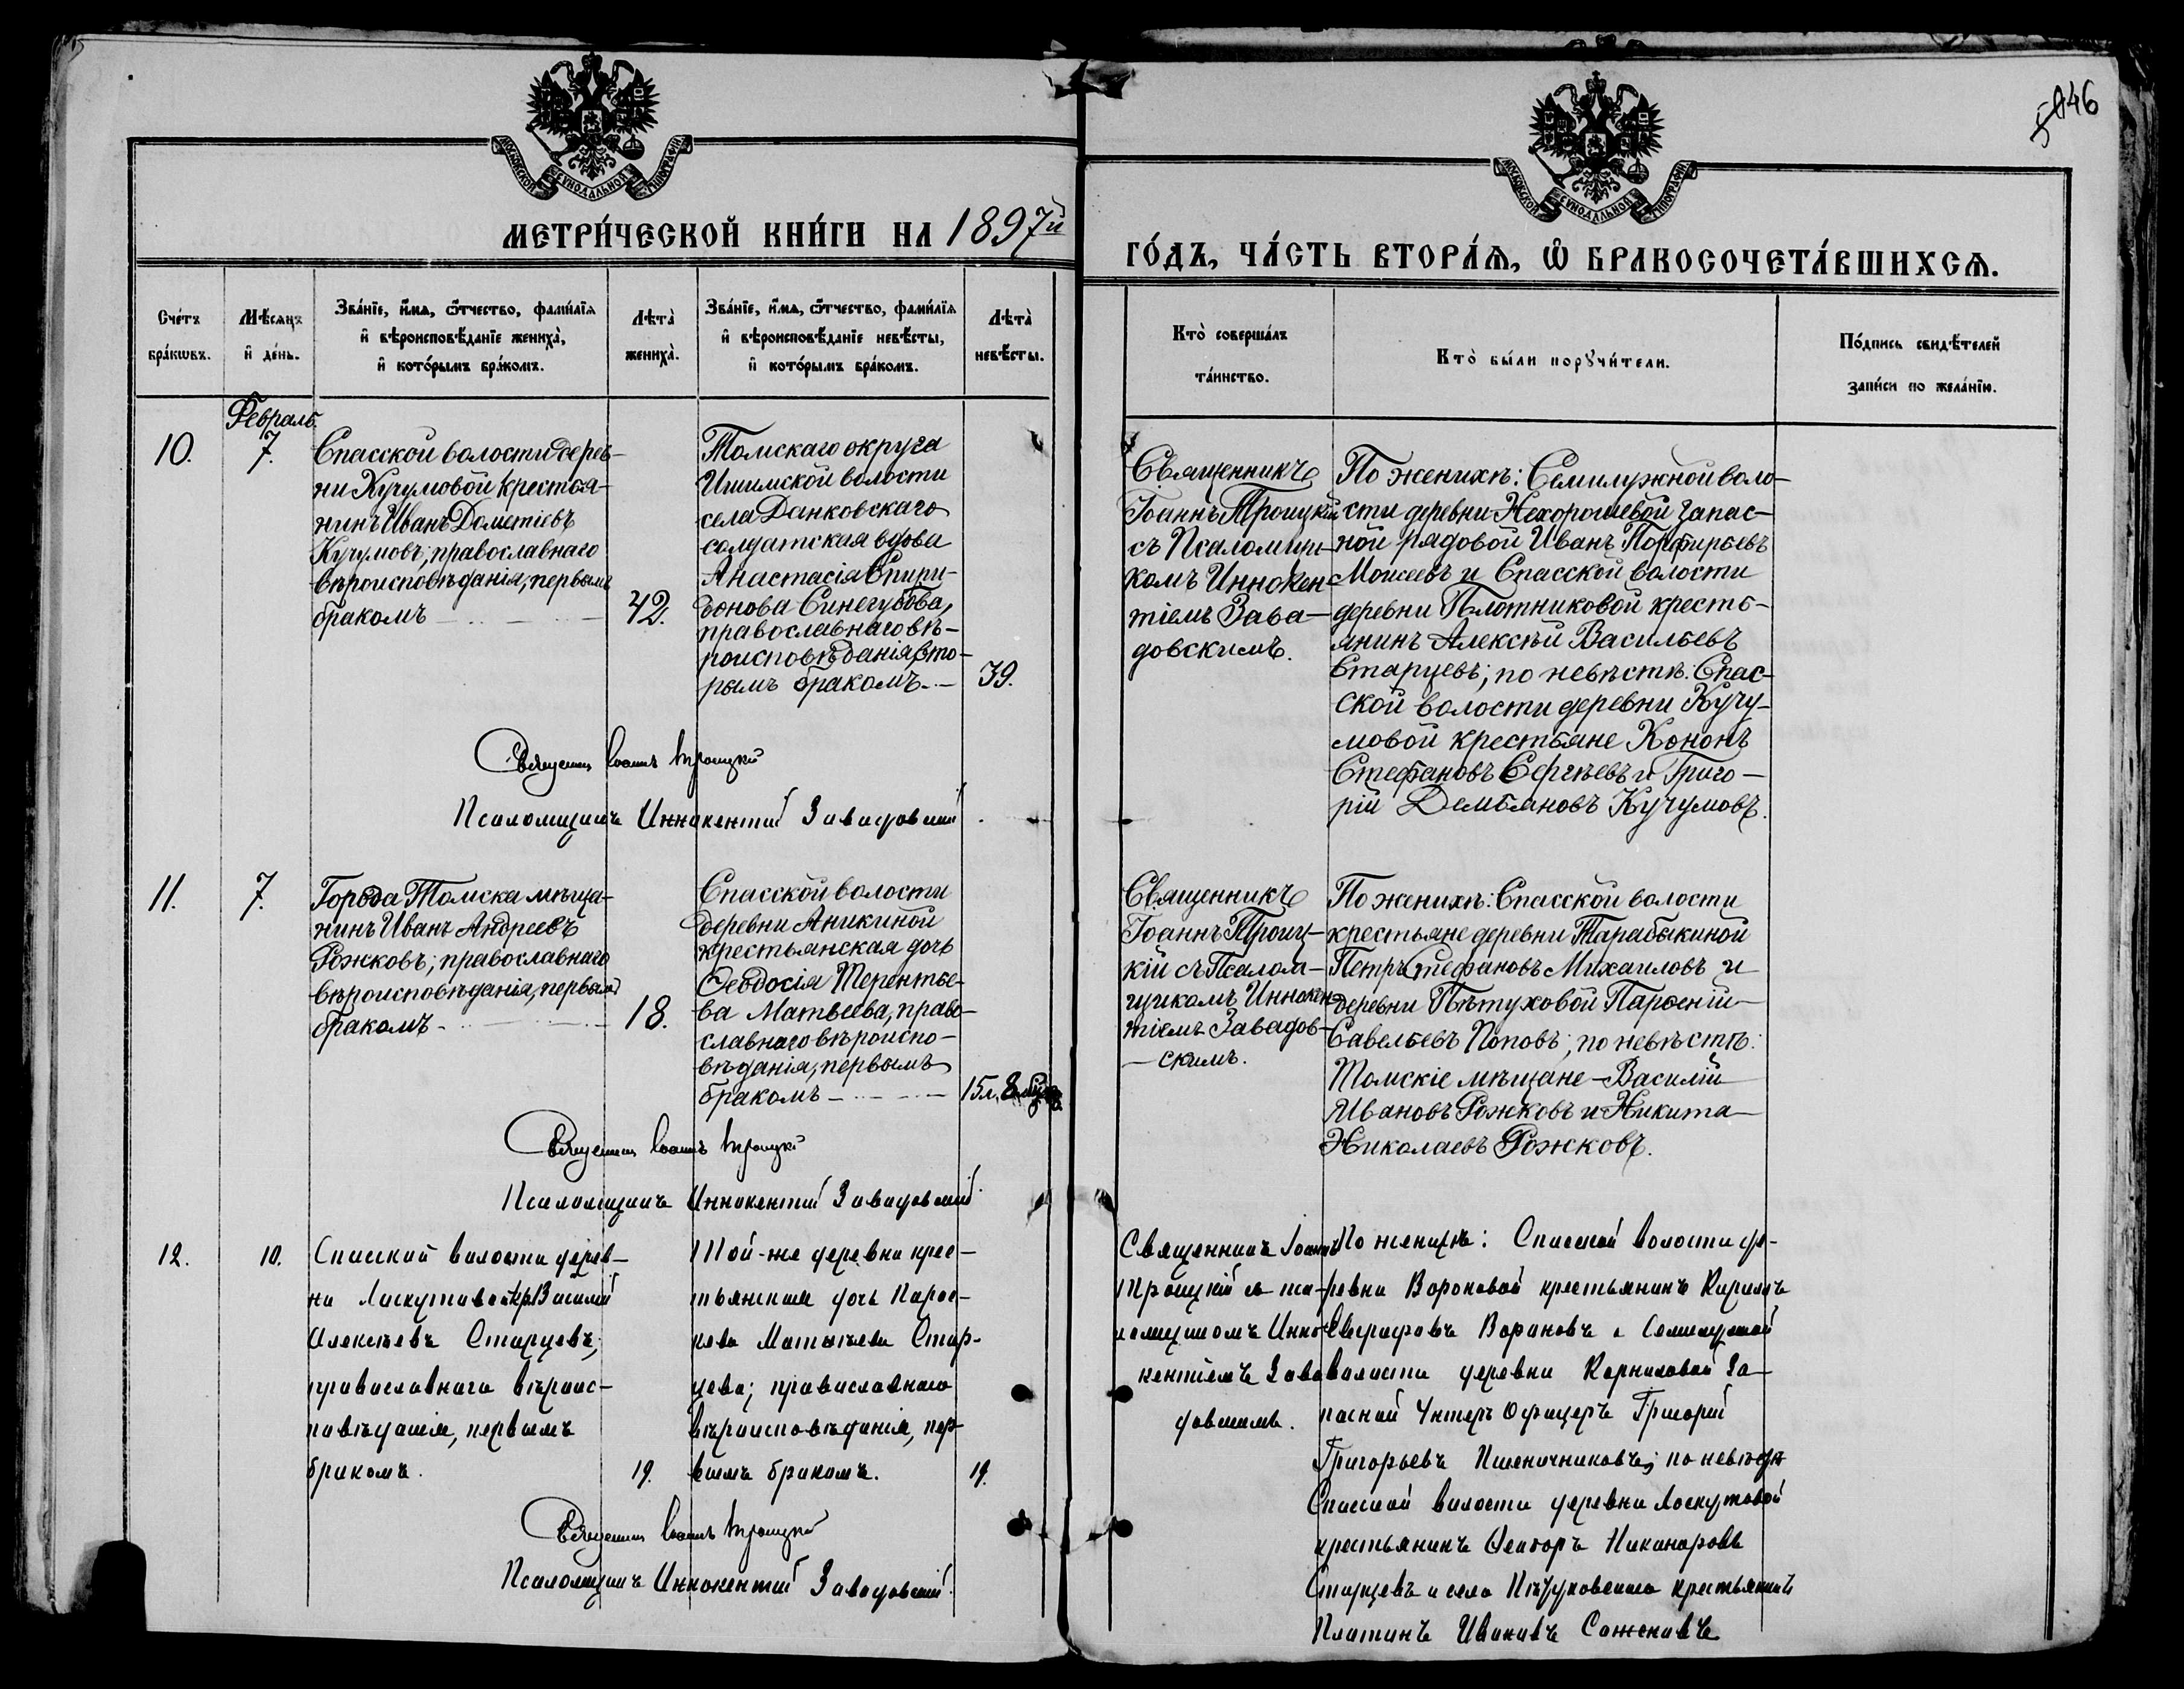 546
МОСКОВСКОЙ СѴНОДАЛЬНОЙ ТИПОГРАФІИ
МОСКОВСКОЙ СѴНОДАЛЬНОЙ ТИПОГРАФІИ
МЕТРИ́ЧЕСКОЙ КНИ́ГИ НА 1897й
ГО́ДЪ, ЧА́СТЬ ВТОРА́Ѧ, Ѽ БРАКОСОЧЕТА́ВШИХСѦ.
Сче́тъ
бра́кѡвъ.
Мѣ́сѧцъ
и҆ де́нь.
Зва́нїе, и҆́мѧ, ѻ҆́тчество, фами́лїѧ
и҆ вѣроисповѣ́данїе жениха̀,
и҆ кото́рымъ бра́комъ.
Лѣта̀
жениха̀.
Зва́нїе, и҆́мѧ, ѻ҆́тчество, фами́лїѧ
и҆ вѣроисповѣ́данїе невѣ́сты,
и҆ кото́рымъ бра́комъ.
Лѣта̀
невѣ́сты.
Кто̀ соверша́лъ
та́инство.
Кто̀ бы́ли порꙋчи́тели.
По́дпись свидѣ́телей
за́писи по жела́нїю.
Февраль
10.
7.
Спасской волости дерев-
ни Кучумовой крестья-
нинъ Иванъ Дометіевъ
Кучумовъ; православнаго
вѣроисповѣданія, первымъ
бракомъ
42.
Томскаго округа
Ишимской волости
села Данковскаго
солдатская вдова
Анастасія Спири-
донова Синегубова,
православнаго вѣ-
роисповѣданія, вто-
рымъ бракомъ
39.
Священникъ
Іоаннъ Троицкій
съ Псаломщи-
комъ Иннокен-
тіемъ Зава-
довскимъ.
По женихѣ: Семилужной воло-
сти деревни Нехорошевой запас-
ной рядовой Иванъ Порфирьевъ
Моисеевъ и Спасской волости
деревни Плотниковой кресть-
янинъ Алексѣй Васильевъ
Старцевъ; по невѣстѣ: Спас-
ской волости деревни Кучу-
мовой крестьяне Кононъ
Стефановъ Сергѣевъ и Григо-
рій Демьяновъ Кучумовъ.
Священник Іоаннъ Троицкій
Псаломщикъ Иннокентій Завадовскій.
11.
7.
Города Томска мѣща-
нинъ Иванъ Андреевъ
Рожковъ; православнаго
вѣроисповѣданія, первымъ
бракомъ
18.
Спасской волости
деревни Аникиной
крестьянская дочь
Ѳеодосія Терентье-
ва Матвѣева, право-
славнаго вѣроиспо-
вѣданія, первымъ
бракомъ
15 л. 8
Священникъ
Іоаннъ Троиц-
кій съ Псалом-
щикомъ Иннокен-
тіемъ Завадов-
скимъ.
По женихѣ: Спасской волости
крестьяне деревни Тарабыкиной
Петръ Стефановъ Михаиловъ и
деревни Пѣтуховой Парѳеній
Савельевъ Поповъ; по невѣстѣ:
Томскіе мѣщане Василій
Ивановъ Рожковъ и Никита
Николаевъ Рожковъ.
Священник Іоаннъ Троицкій
Псаломщикъ Иннокентій Завадовскій.
12.
10.
Спасской волости дерев-
ни Лоскутовой кр. Василій
Алексѣевъ Старцевъ,
православнаго вѣроис-
повѣданія, первымъ
бракомъ.
19.
Той-же деревни крес-
тьянская дочь Парас-
кева Матвѣева Стар-
цева; православнаго
вѣроисповѣданія, пер-
вымъ бракомъ.
19.
Священникъ Іоаннъ
Троицкій съ пса-
ломщикомъ Инно-
кентіемъ Зава-
довскимъ.
По женихѣ: Спасской волости де-
ревни Вороновой крестьянинъ Кирилъ
Евграфовъ Вороновъ и Семилужной
волости деревни Корниловой за-
пасной Унтеръ Офицеръ Григорій
Григорьевъ Пшеничниковъ; по невѣстѣ
Спасской волости деревни Лоскутовой
крестьянинъ Ѳеодоръ Никаноровъ
Старцевъ и села Пѣтуховскаго крестьянинъ
Платонъ Ивановъ Саженовъ
Священник Іоаннъ Троицкій
Псаломщикъ Иннокентій Завадовскій.